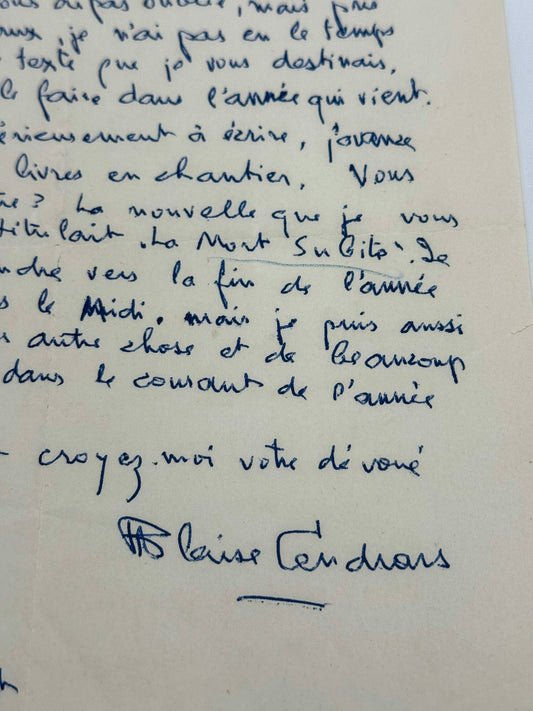 pas oublié, mais pris
, je n'ai pas eu le temps
texte que je vous destinais,
le faire dans l'année qui vient.
érieusement à écrire, j'avance
livres en chantier. Vous
? La nouvelle que je vous
titulait "La Mort Subite". Je
ndre vers la fin de l'année
s le Midi. mais je puis aussi
autre chose et de beaucoup
dans le courant de l'année
croyez-moi votre dévoué
Blaise Cendrars